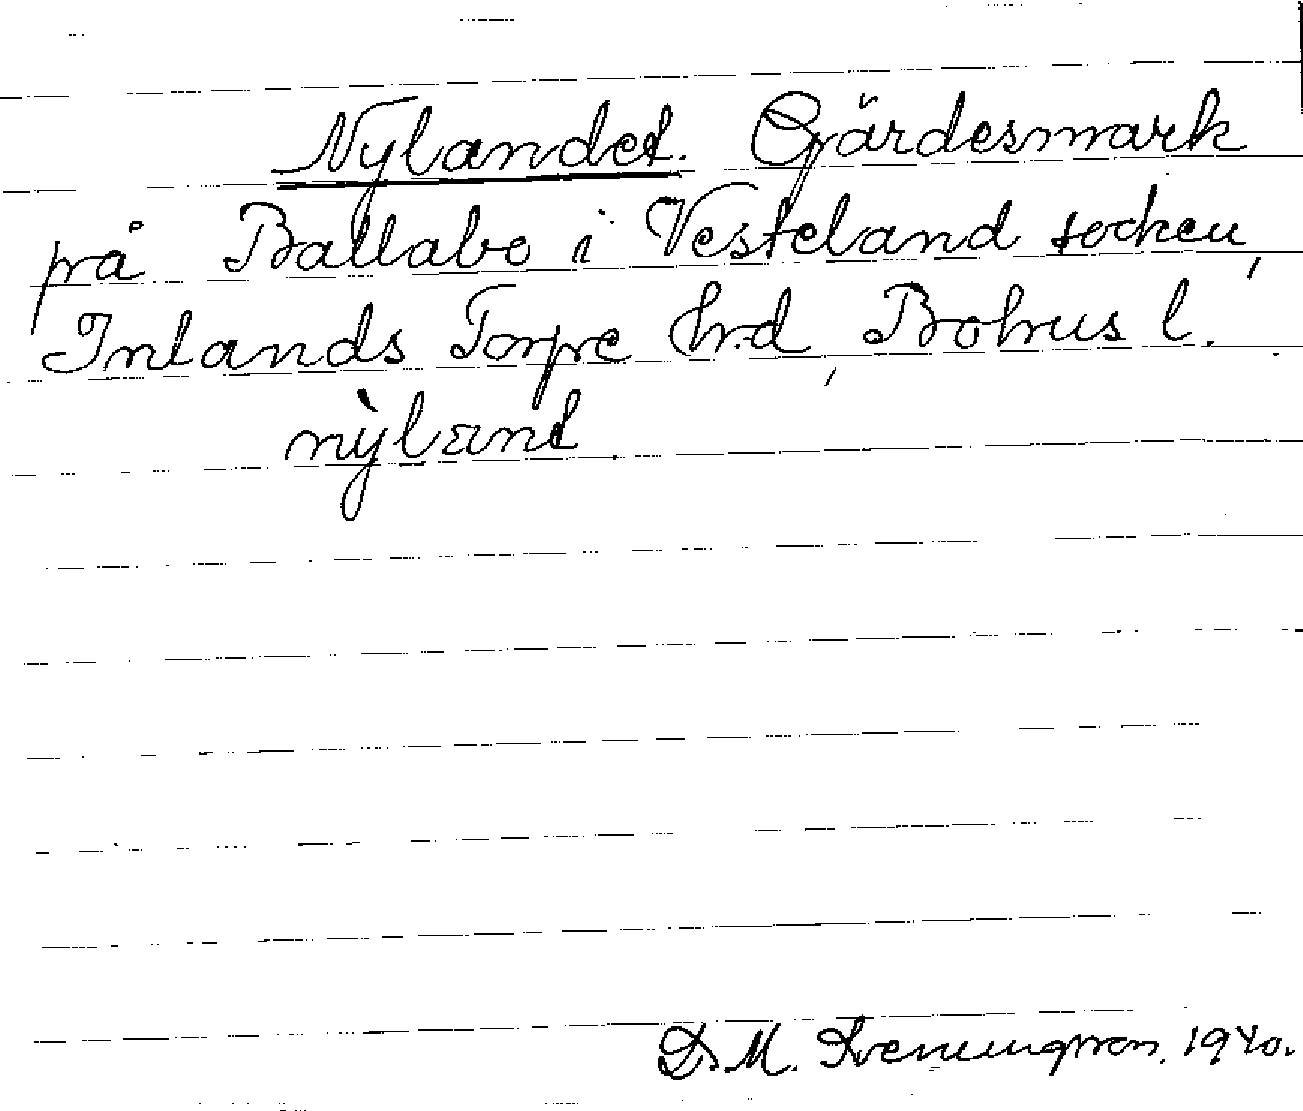 Nylandet. Gärdesmark
på Ballabo i Vesteland socken,
Inlands Torpe hrd, Bohus l.
nỳland
D. M. Sveningsson. 1940.